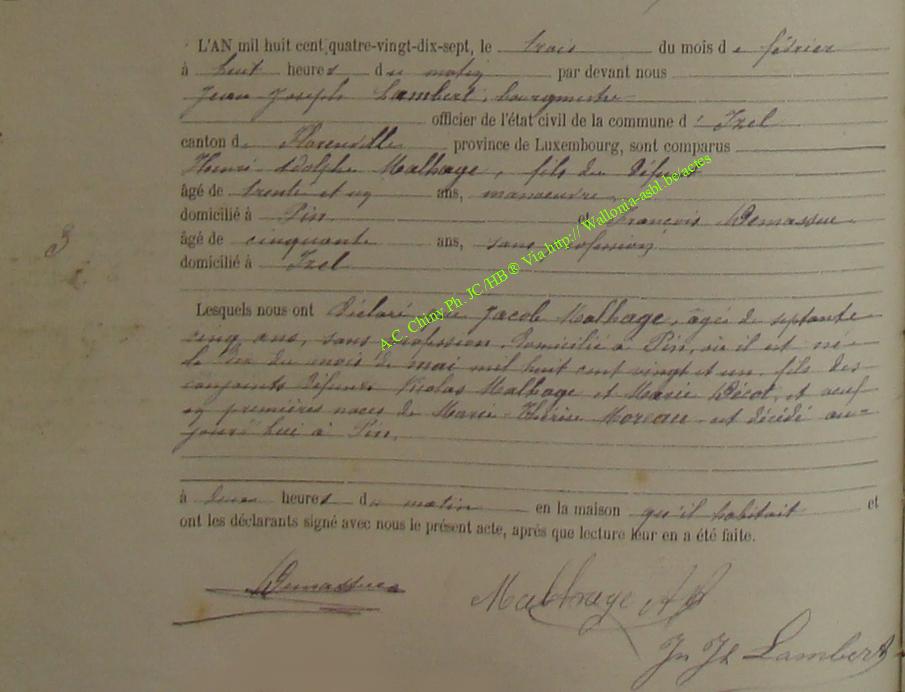 L'AN mil huit cent quatre-vingt-dix-sept, le trois du mois de février
à huit heures du matin par devant nous
Jean Joseph Lambert, bourgmestre
officier de l'état civil de la commune d'Izel
canton de Florenville province de Luxembourg, sont comparus
Henri Adolphe Malhage, fils du défunt
âgé de trente et un ans, manoeuvre
domicilié à Pin et François Demassue
3
âgé de cinquante ans, sans profession
domicilié à Izel
A.C. Chiny Ph. JC/HB® Via http:// Wallonia-asbl.be/actes
Lesquels nous ont déclaré que Jacob Malhage, âgé de septante
cinq ans, sans profession, domicilié à Pin, où il est né
le du mois de mai mil huit cent vingt et un, fils des
conjoints défunts Nicolas Malhage et Marie Décot, et veuf
en premières noces de Marie-Thérèse Moreau est décédé au-
jourd'hui à Pin,
à deux heures du matin en la maison qu'il habitait et
ont les déclarants signé avec nous le présent acte, après que lecture leur en a été faite.
Demassue
Malhage Ad
Jn Jh Lambert